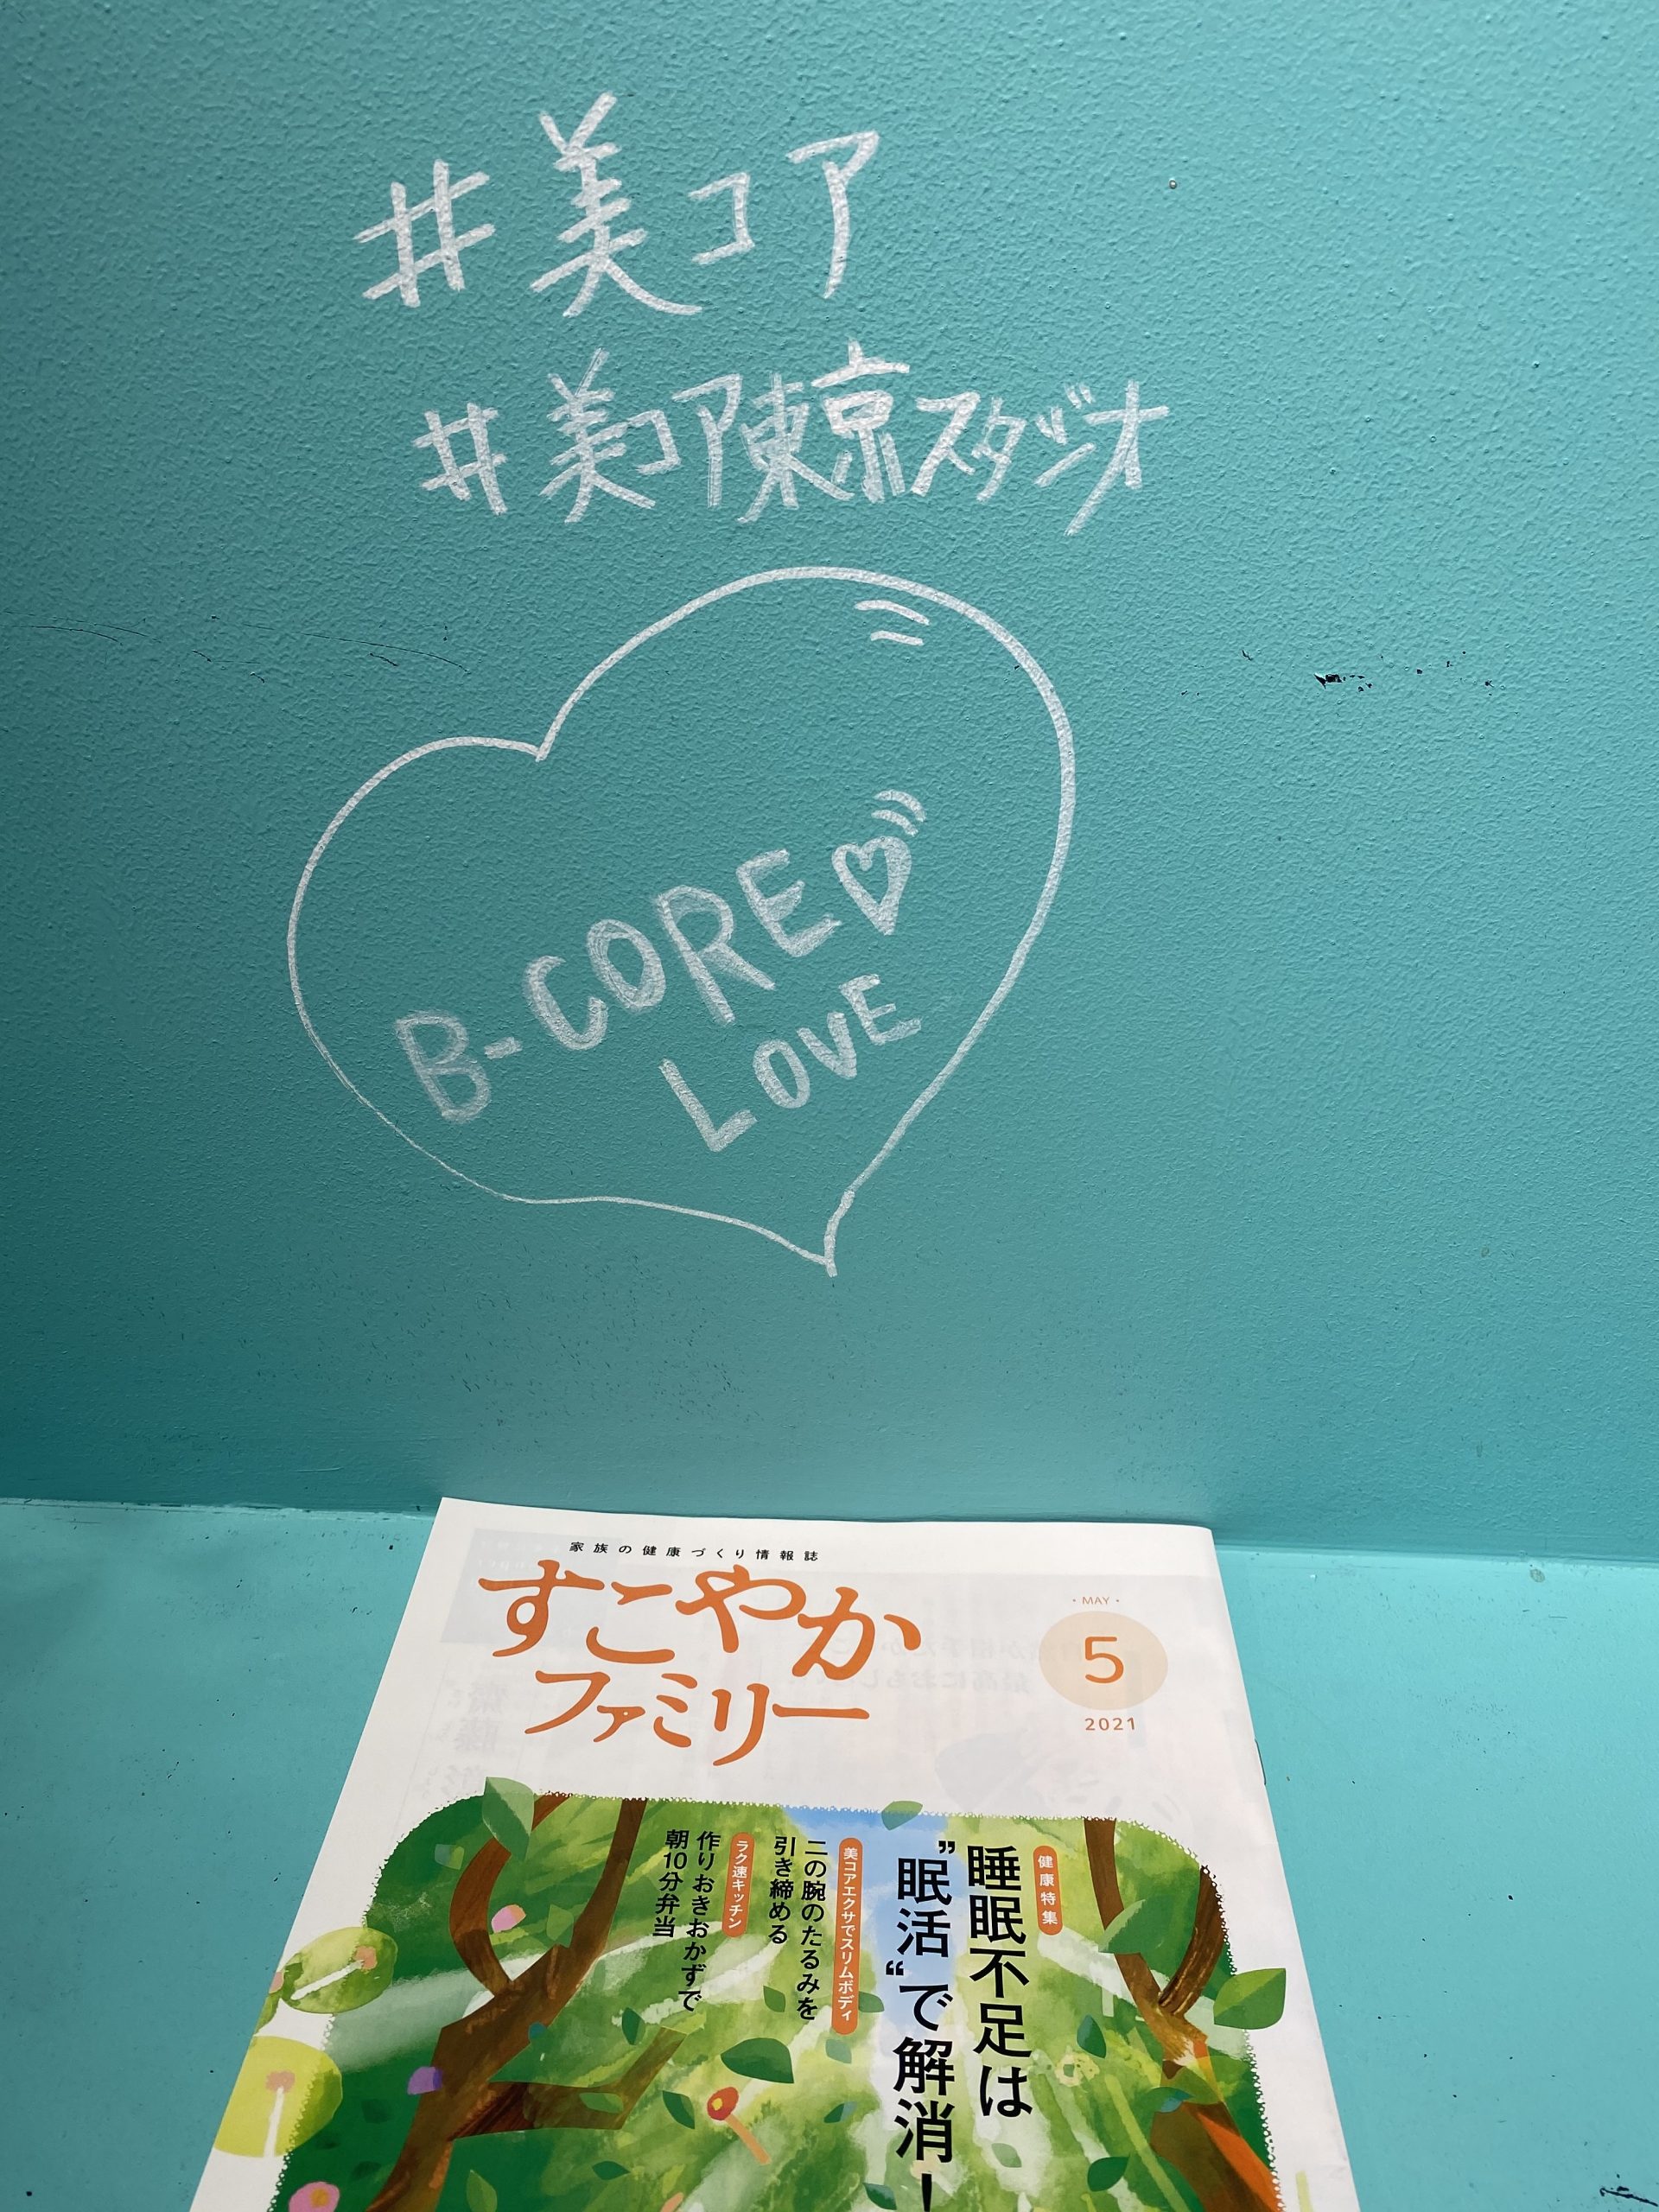 #美コア
#美コア東京スタジオ
B-CORE
LOVE
家族の健康づくり情報誌
すこやか
ファミリー
・MAY・
5
2021
健康特集
睡眠不足は
”眠活“で解消！
美コアエクサでスリムボディ
二の腕のたるみを
引き締める
ラク速キッチン
作りおきおかずで
朝10分弁当